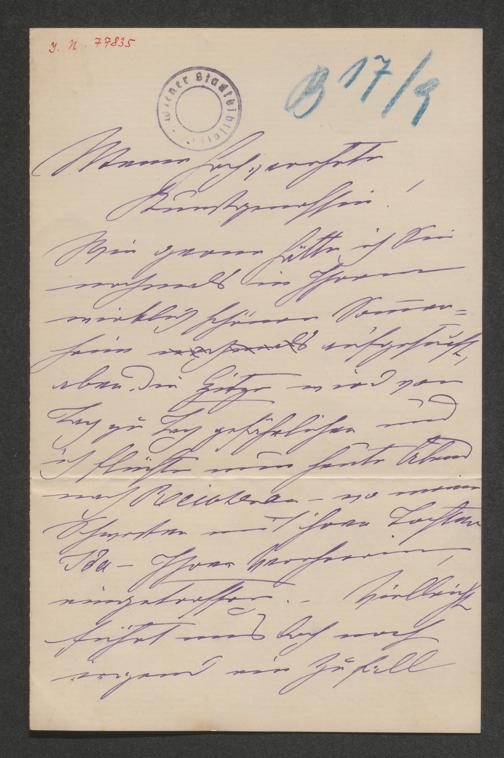 J. N. 77835
Wiener Stadtbibliothek
B 17/9
Meine hochverehrte
Kunstgenossin!
Wie gerne hätte ich Sie
nochmals in Ihrem
wirklich schönen Sommer=
heim nochmals aufgesucht,
aber die Hitze wird von
Tag zu Tag gefährlicher und
ich flüchte nun heute Abend
nach – wo meine
Schwester mit ihrer Tochter
Ida – Ihrer Verehrerin,
eingetroffen. – Vielleicht
führt uns doch noch
irgend ein Zufall